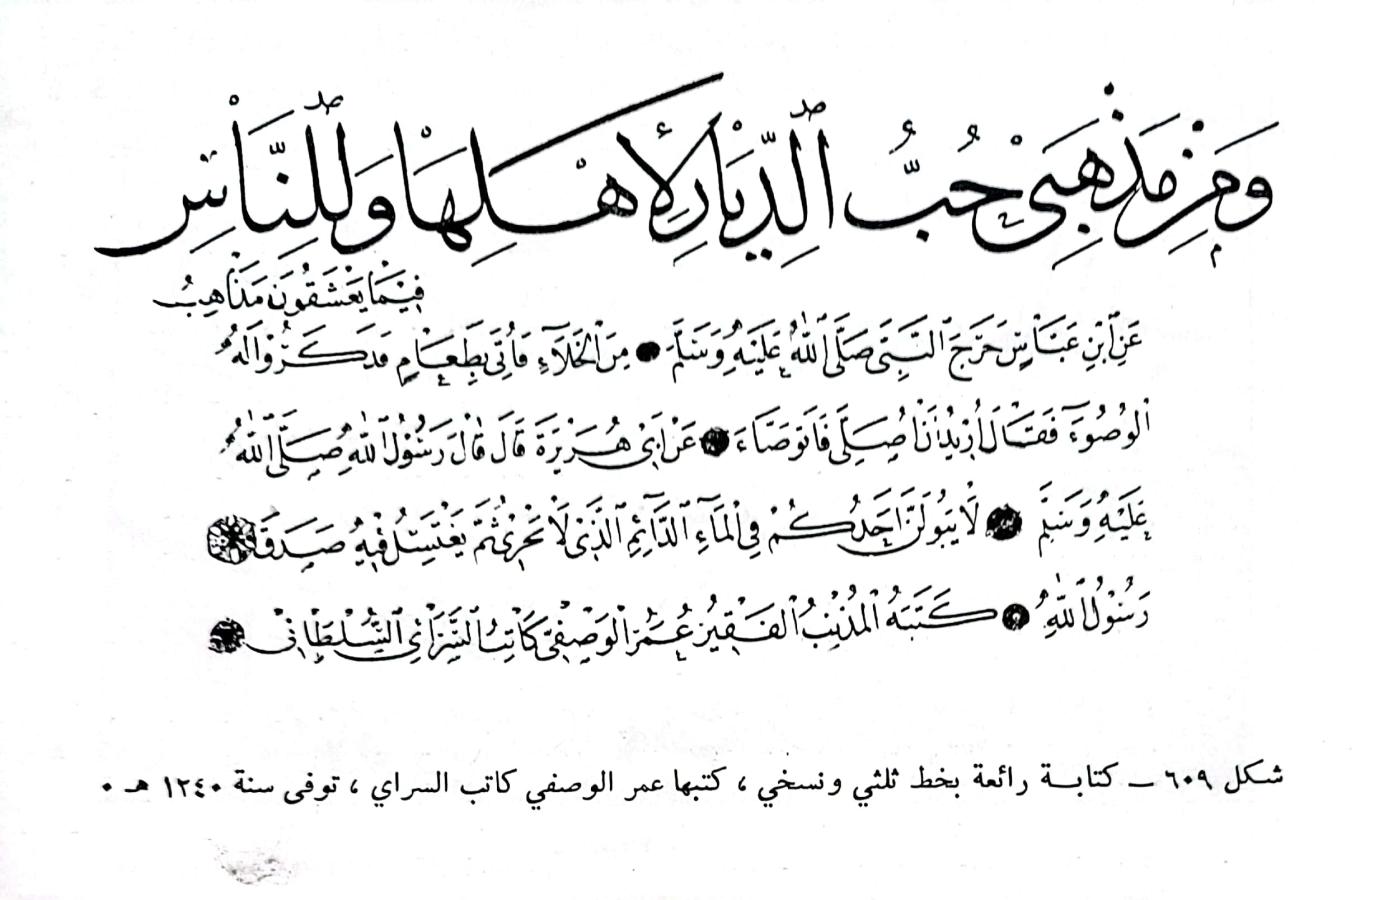 وَمِنْ مَذْهَبِي حُبُّ الدِّيَارِ لِأَهْلِهَا وَلِلنَّاسِ
فِيمَا يَعْشَقُونَ مَذَاهِبُ
عَنِ ابْنِ عَبَّاسٍ خَرَجَ النَّبِيُّ صَلَّى اللهُ عَلَيْهِ وَسَلَّمَ مِنَ الْخَلَاءِ فَأُتِيَ بِطَعَامٍ فَذَكَرُوا لَهُ
الْوُضُوءَ فَقَالَ أُرِيدُ أَنْ أُصَلِّيَ فَأَتَوَضَّأَ عَنْ أَبِي هُرَيْرَةَ قَالَ قَالَ رَسُولُ اللهِ صَلَّى اللهُ
عَلَيْهِ وَسَلَّمَ لَا يَبُولَنَّ أَحَدُكُمْ فِي الْمَاءِ الدَّائِمِ الَّذِي لَا يَجْرِي ثُمَّ يَغْتَسِلُ فِيهِ صَدَقَ
رَسُولُ اللهِ كَتَبَهُ الْمُذْنِبُ الْفَقِيرُ عُمَرُ الْوَصْفِي كَاتِبُ السَّرَايِ السُّلْطَانِي
شكل ٦٠٩ ــ كتابة رائعة بخط ثلثي ونسخي ، كتبها عمر الوصفي كاتب السراي ، توفى سنة ١٢٤٠ هـ ٠